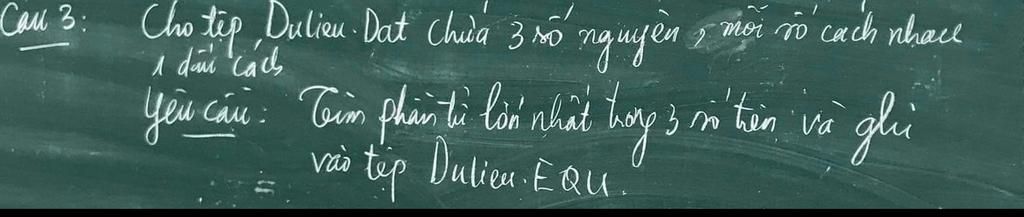 Câu 3: Cho tệp Dulieu.Dat chứa 3 số nguyên, mỗi số cách nhau
1 dấu cách
Yêu cầu: Tìm phần tử lớn nhất trong 3 số trên và ghi
vào tệp Dulieu.EQU.